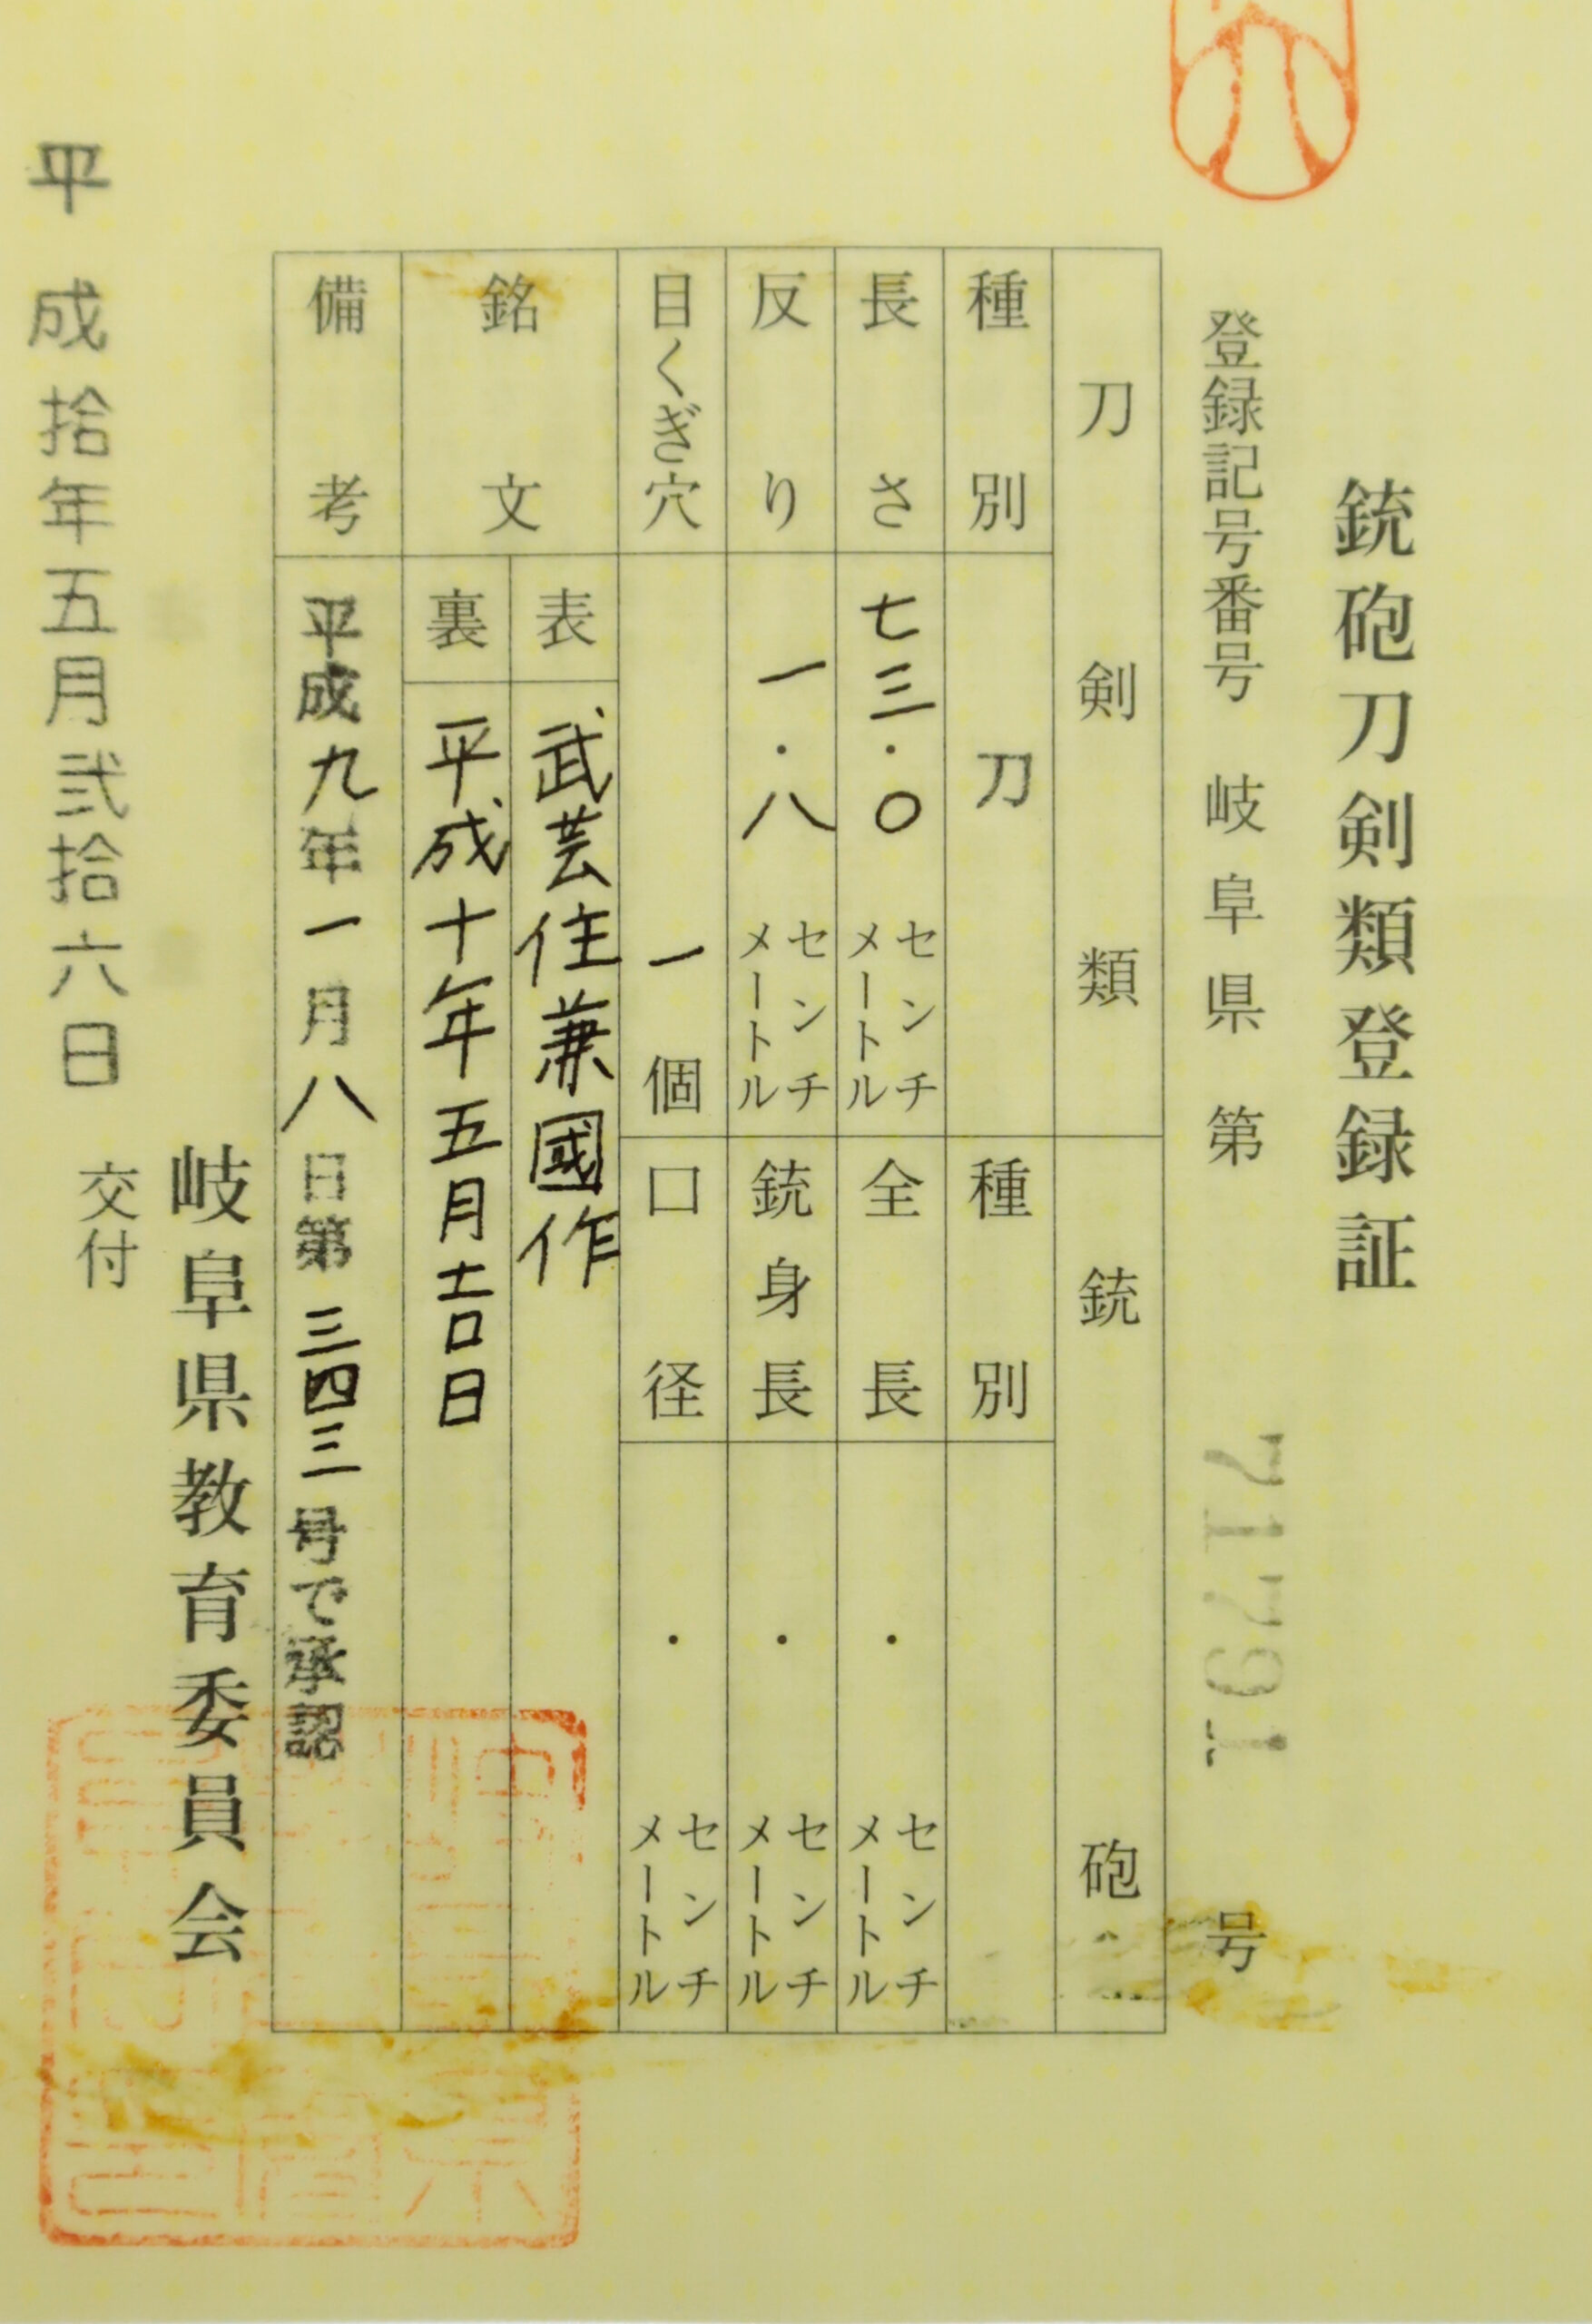 銃砲刀剣類登録証
登録記号番号 岐阜県 第 71791 号
刀剣類
種別 刀
長さ 七三・〇 センチメートル
反り 一・八 センチメートル
目くぎ穴 一個
銘文
表 武芸住兼國作
裏 平成十年五月吉日
備考 平成九年一月八日第三四三号で承認
銃砲
種別
全長 ・ センチメートル
銃身長 ・ センチメートル
口径 ・ センチメートル
岐阜県教育委員会
平成拾年五月弐拾六日 交付